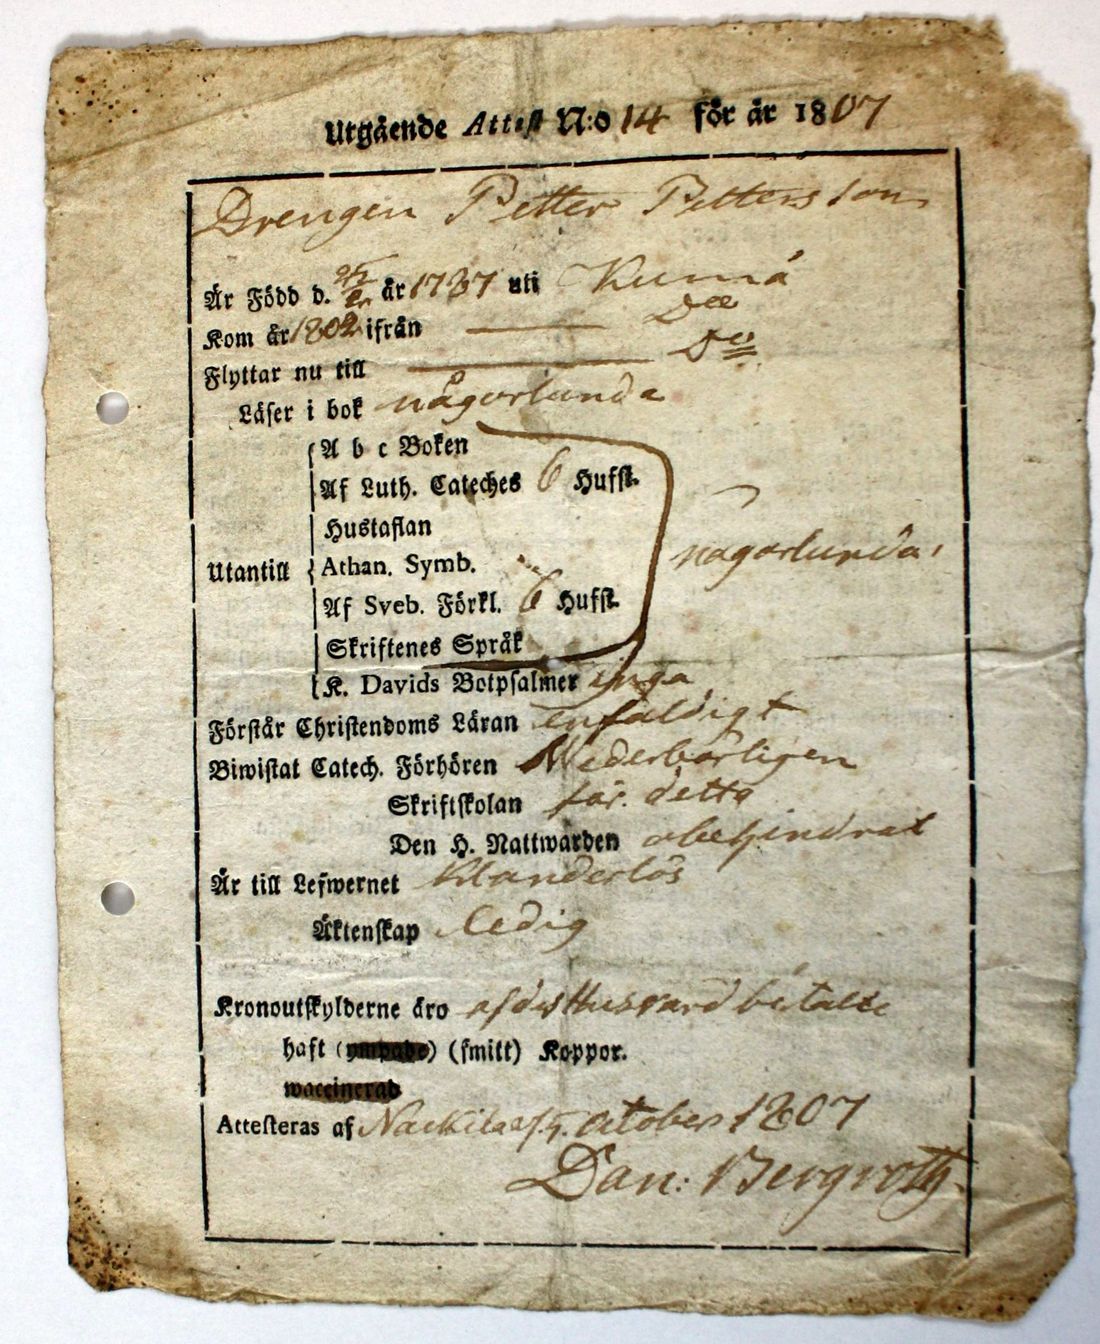 Utgående Attest N:o 14 för år 1807
Drengen Petter Pettersson
Är Född d. år 1787 uti Kumå
Kom år 1802 ifrån — Do
Flyttar nu till — Do
Läser i bok någorlunda
A b c Boken
Af Luth. Cateches 6 Hufst.
Hustaflan
Utantill Athan. Symb. någorlunda,
Af Sveb. Förkl. 6 Hufst.
Skriftenes Språk
K. Davids Botpsalmer inga
Förstår Christendoms Läran enfaldigt
Biwistat Catech. Förhören Wederbörligen
Skriftskolan för detta
Den H. Nattwarden obehindrat
Är till Lefwernet Klanderlös
Äktenskap Ledig
Kronoutskylderne äro af dess Husbond betalte
haft (ympade) (smitt) Koppor.
waccinerad
Attesteras af Nackila October 1807
Dan: Bergroth